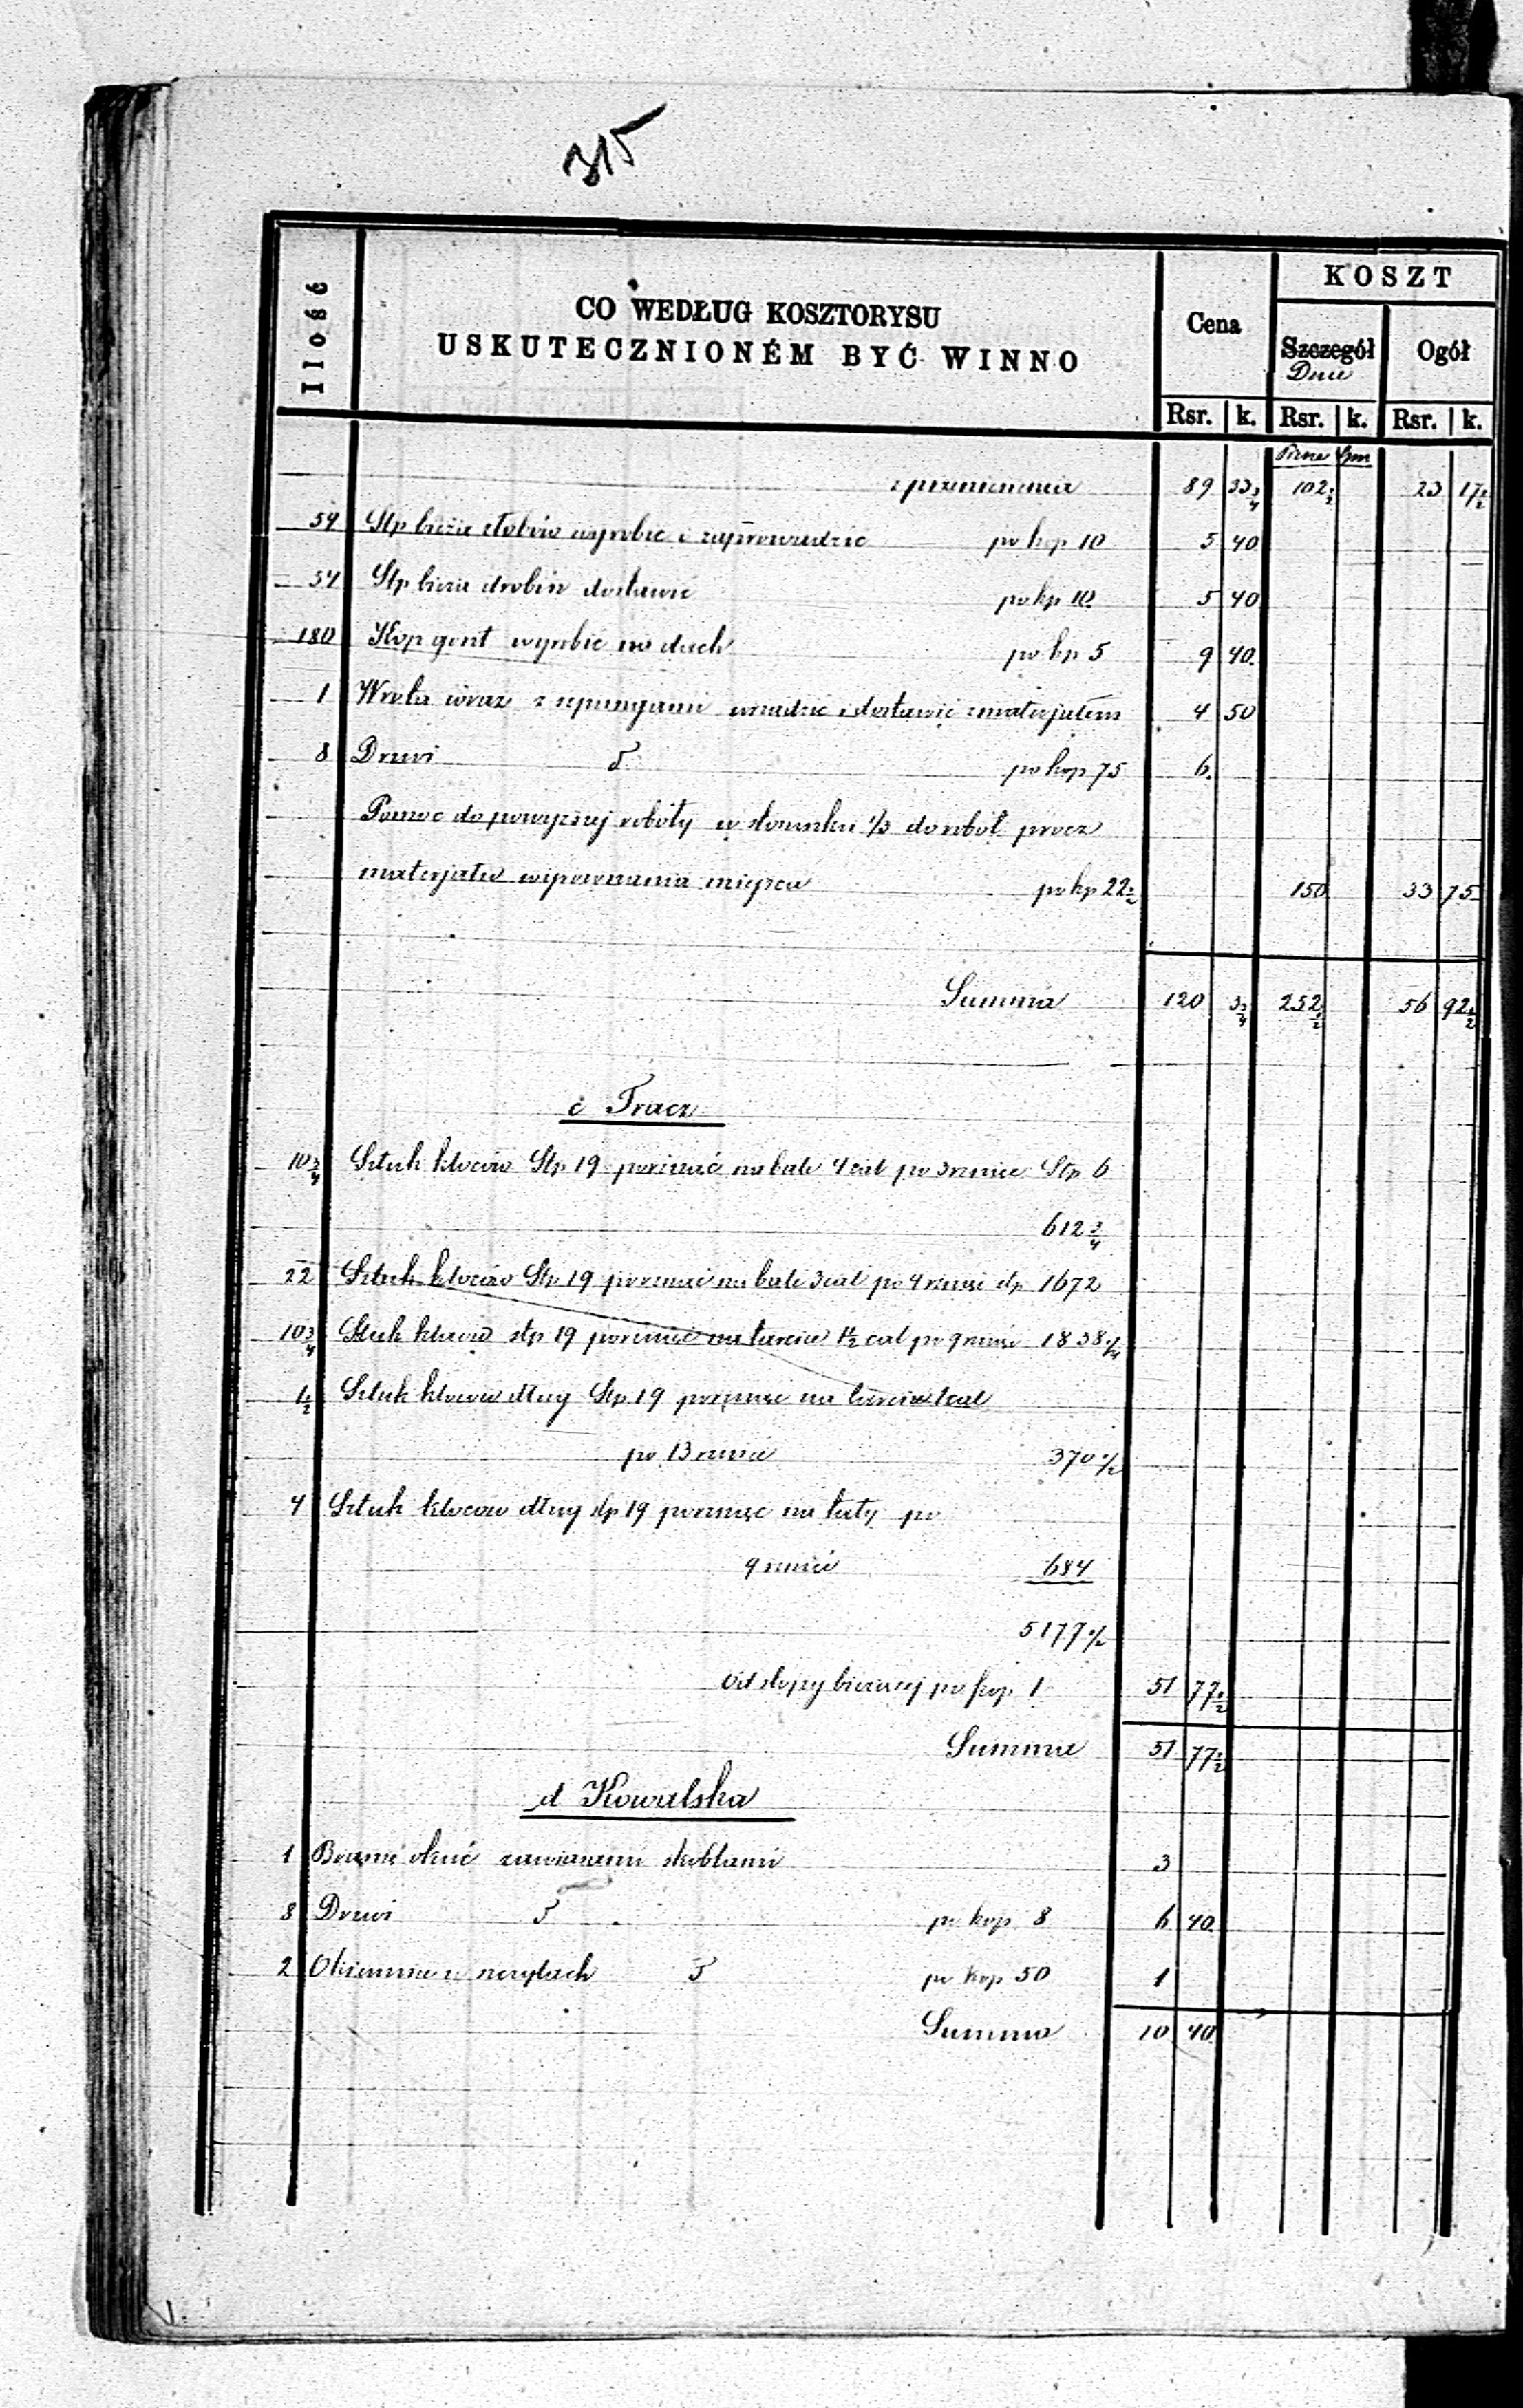 315
Ilość
CO WEDŁUG KOSZTORYSU
USKUTECZNIONÉM BYĆ WINNO
Cena
KOSZT
Szczegół
Dnie
Ogół
Rsr. k. Rsr. k. Rsr. k.
Piesze
z przeniesienia 89 33 3/4 102 1/2 23 17 1/2
54 Stp bieżą słobów wyrobić i zaprowadzić po kop 10 5 40
54 Stp bieżą drobin dostawić po kp 10 5 40
180 Kop gont wyrobić na dach po kp 5 9 40
1 Wrota wraz z urządzić i dostawić z materjałem 4 50
8 Drzwi po kop 75 6
Pomoc do powyższej roboty w stosunku 1/3 do robót prócz
materjałów miejsca po kp 22 1/2 150 33 75
Summa 120 3 3/4 252 1/2 56 92 1/2
c Tracz
10 3/4 Sztuk kloców Stp 19 porznąć na bale 4 cal po 3 rznice Stp 6
612 3/4
22 Sztuk kloców Stp 19 porznąć na bale 3 cal po 4 rznię stp 1672
10 3/4 Sztuk kloców stp 19 porznąć na tarcice 1 1/2 cal po 9 rznię 1838 1/4
1 1/2 Sztuk kloców dług Stp 19 porznąć na tarcice 1 cal
po 13 rznię 370 1/2
4 Sztuk kloców dług stp 19 porznąć na łaty po
9 rznię 684
5177 1/2
od stopy bieżącej po kop 1 51 77 1/2
Summa 51 77 1/2
d Kowalska
1 Bramę okuć zawiasami skoblami 3
8 Drzwi po kop 8 6 40
2 Okiennice w szczytach po kop 50 1
Summa 10 40